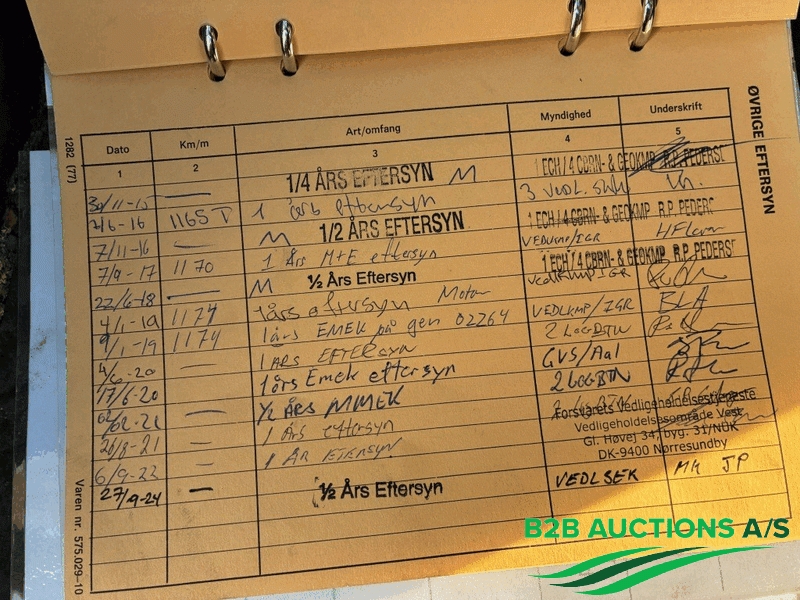 ØVRIGE EFTERSYN
Dato Km/m Art/omfang Myndighed Underskrift
1 2 3 4 5
30/11-15 — 1/4 ÅRS EFTERSYN M 1 ECH / 4 CBRN- & GEOKMP R.P. PEDERS
2/6-16 1165 T 1 årb eftersyn 3 VEDL.
7/11-16 — M 1/2 ÅRS EFTERSYN 1 ECH / 4 CBRN- & GEOKMP R.P. PEDERS
VEDLKMP/IGR
7/9-17 1170 1 Års M+E eftersyn 1 ECH / 4 CBRN- & GEOKMP R.P. PEDERS
22/6-18 — M ½ Års Eftersyn VEDLKMP IGR
4/1-19 1174 1 års eftersyn Motor VEDLKMP/IGR BLA
9/1-19 1174 1 års EMEK på gen 02264 2 LOGBTN
4/6-20 — 1 ÅRS EFTERSYN GVS/Aal
17/6-20 — 1 års Emek eftersyn 2 LOGBTN
02/02-21 — ½ ÅRS MMEK
26/8-21 — 1 Års eftersyn
Forsvarets Vedligeholdelsestjeneste
Vedligeholdelsesområde Vest
Gl. Høvej 34, byg. 31/NUK
DK-9400 Nørresundby
6/9-22 — 1 ÅR EFTERSYN
27/9-24 — ½ Års Eftersyn VEDLSEK MH JP
1282 (77)
Varen nr. 575.029-10
B2B AUCTIONS A/S